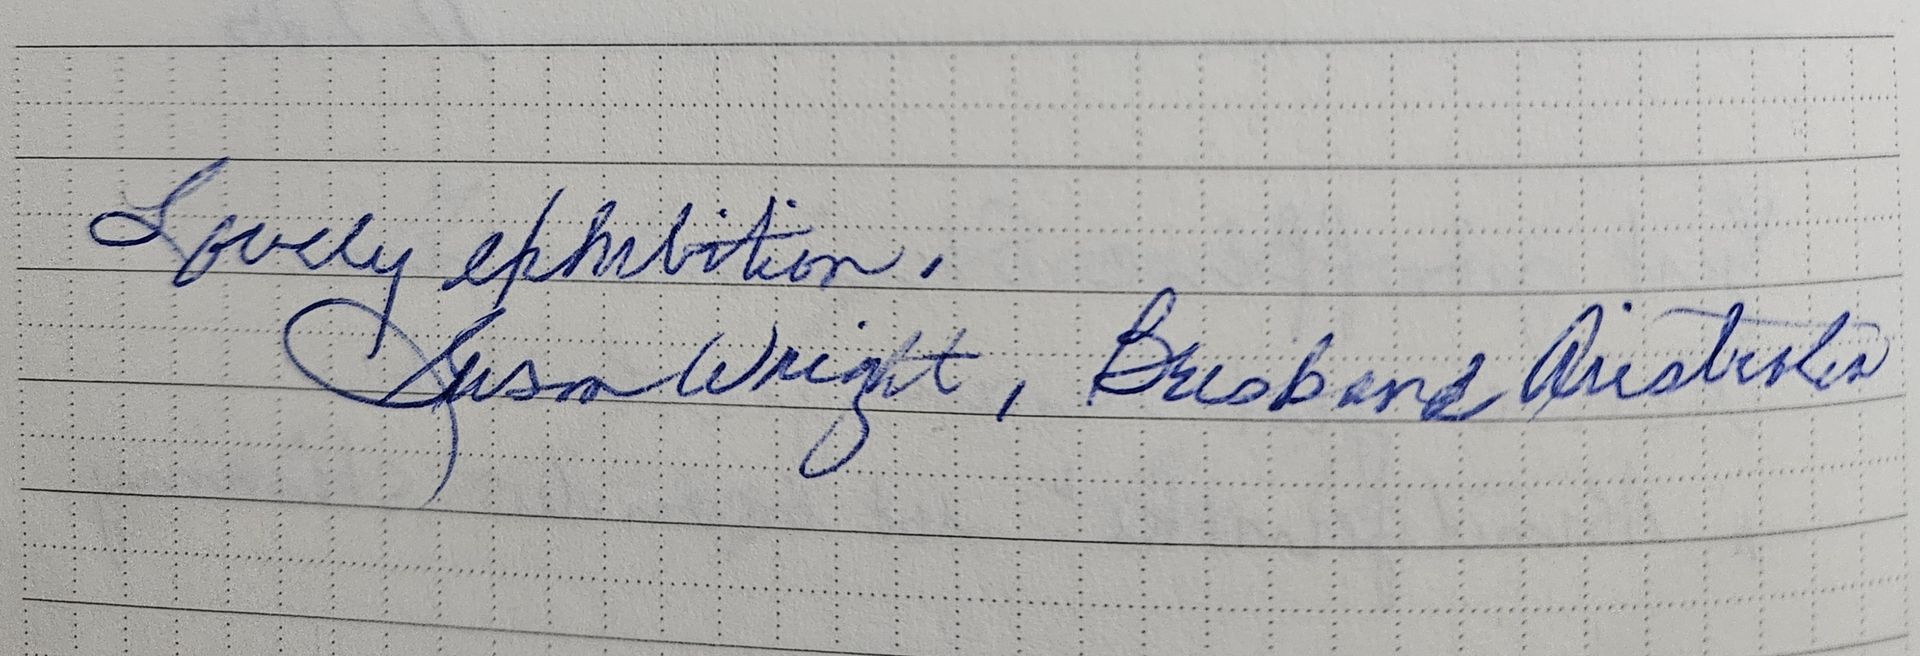 Lovely exhibition.
Susan Wright, Brisbane Australia